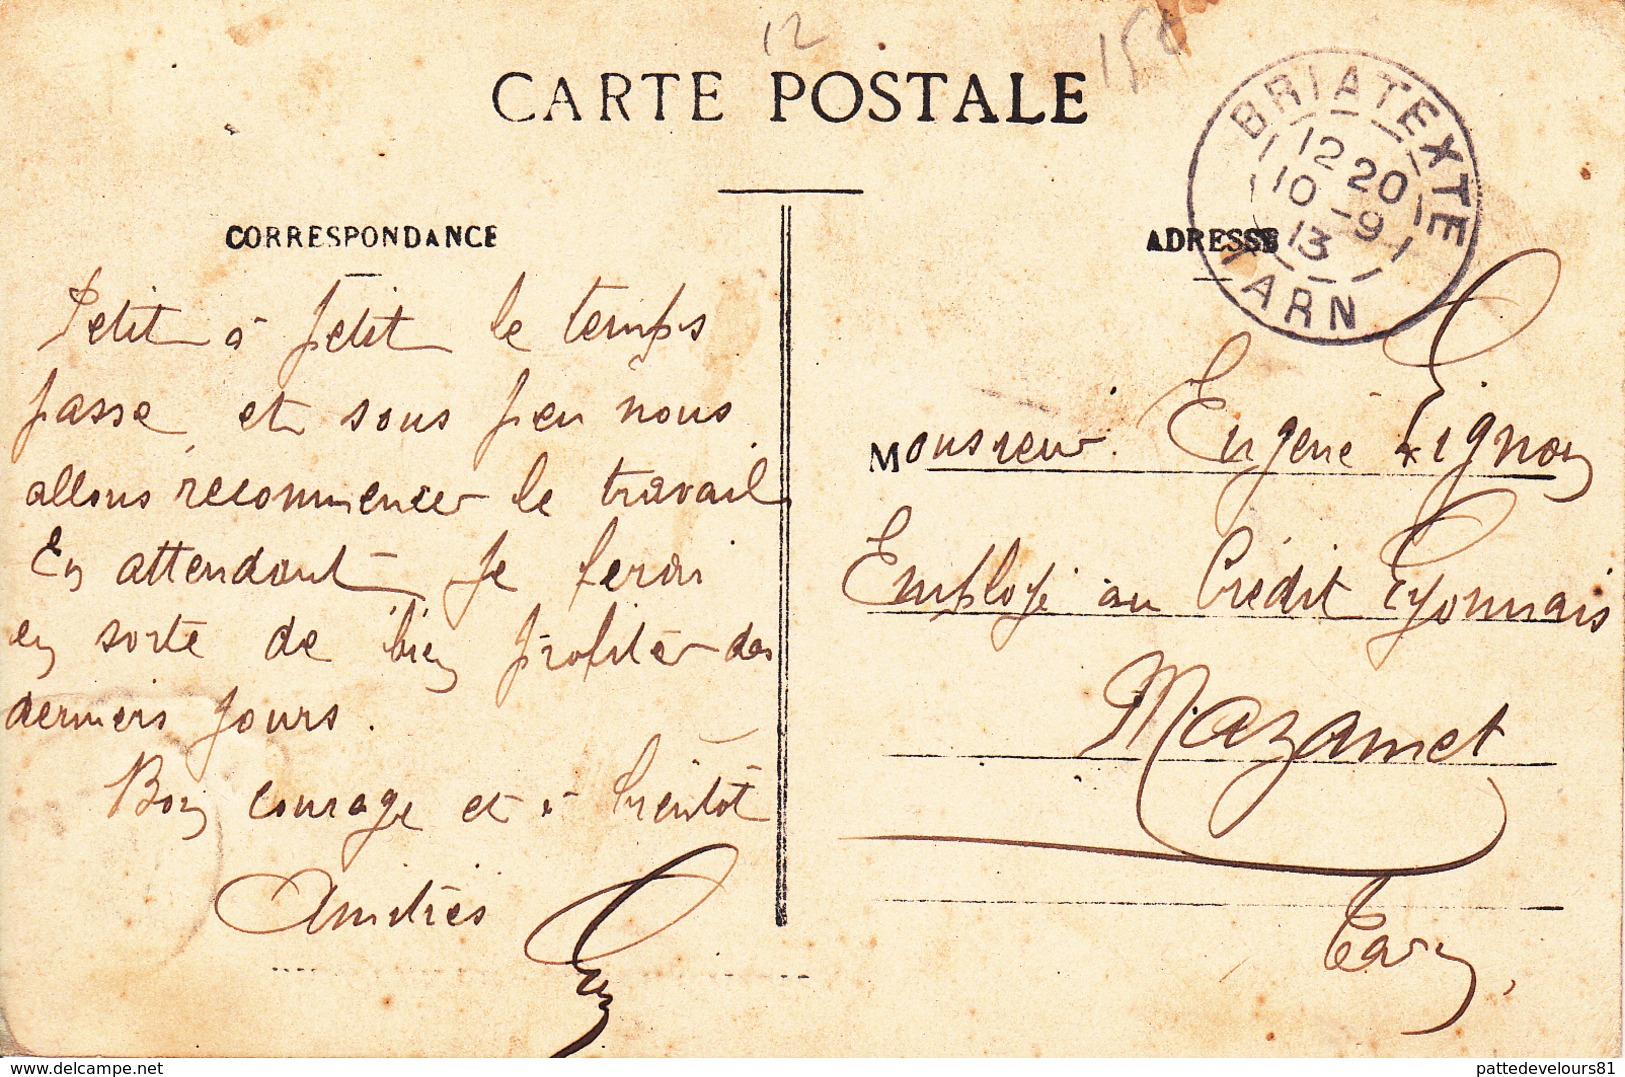 12
150
CARTE POSTALE
BRIATEXTE
12 20
10 -9
13
TARN
CORRESPONDANCE
Petit à petit le temps
passe et sous peu nous
allons recommencer le travail
En attendant je ferai
en sorte de bien profiter des
derniers jours.
Bon courage et à bientôt
Amitiés
ADRESSE
Monsieur Eugène Lignon
Employé au Crédit Lyonnais
Mazamet
Tarn
delcampe.net
pattedevelours81